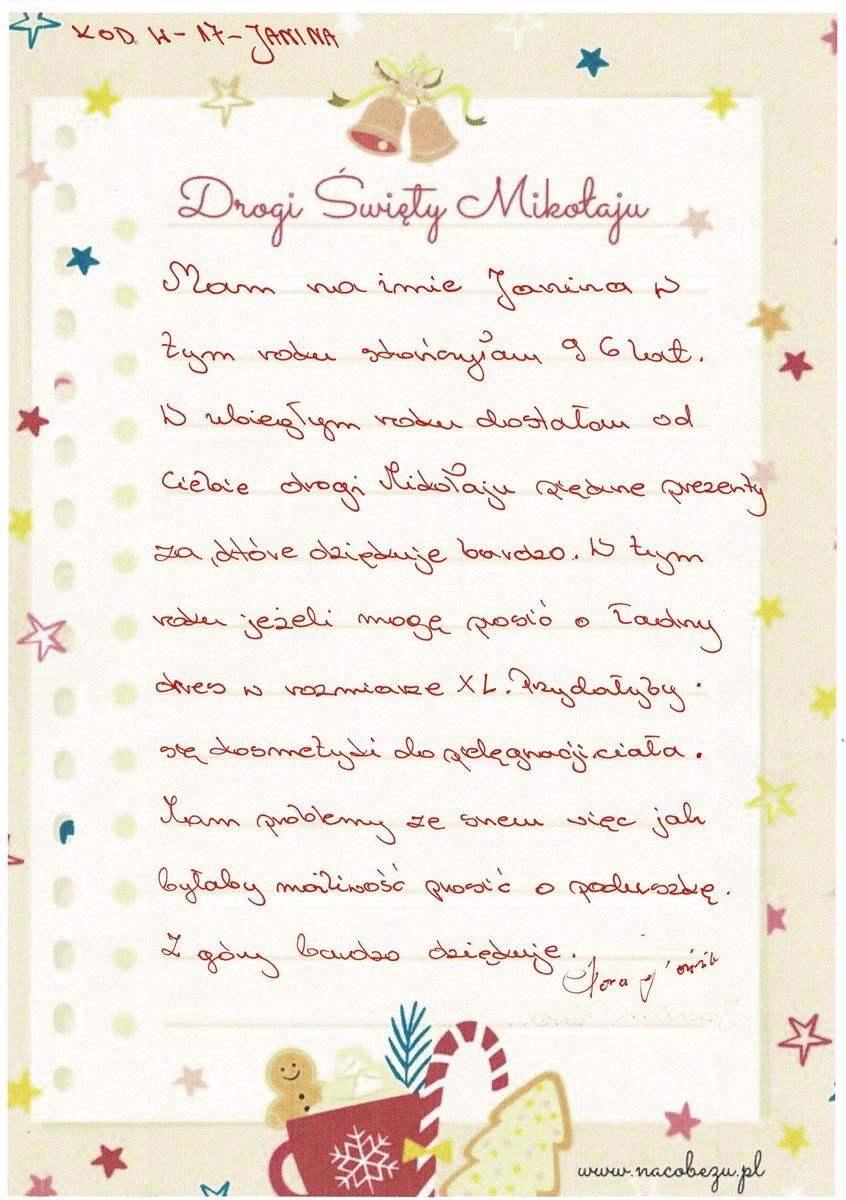 KOD W-17-JANINA
Drogi Święty Mikołaju
Mam na imie Janina w
tym roku skończyłam 96 lat.
W ubiegłym roku dostałam od
Ciebie drogi Mikołaju piękne prezenty
za, które dziękuje bardzo. W tym
roku jeżeli mogę prosić o ładny
dres w rozmiarze XL. Przydałyby
się kosmetyki do pielęgnacji ciała.
Mam problemy ze snem więc jak
byłaby możliwość prosić o poduszkę.
Z góry bardzo dziękuje.
www.nacobezu.pl